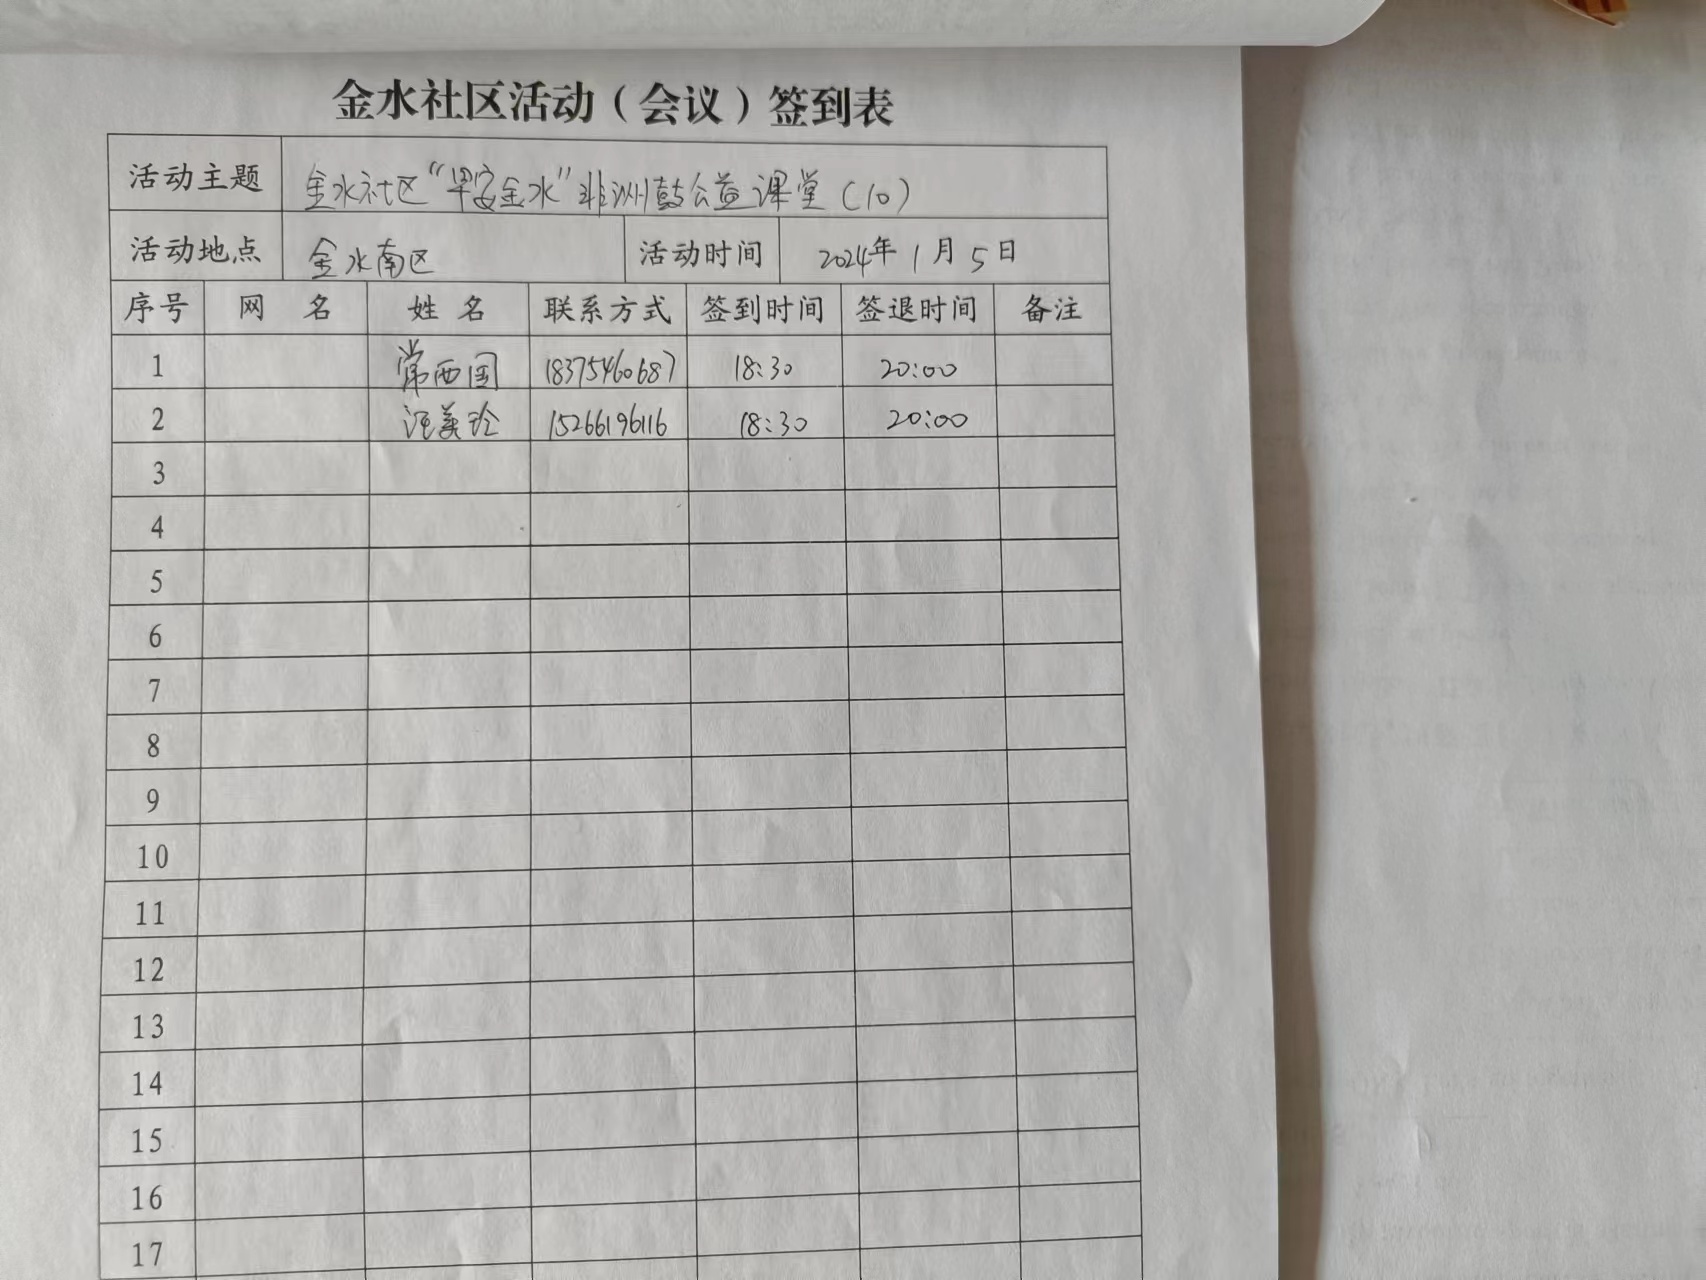 金水社区活动（会议）签到表
活动主题 金水社区“早安金水”非洲鼓公益课堂（10）
活动地点 金水南区 活动时间 2024年1月5日
序号 网 名 姓 名 联系方式 签到时间 签退时间 备注
1 常西国 18375460687 18:30 20:00
2 美玲 15266196116 18:30 20:00
3
4
5
6
7
8
9
10
11
12
13
14
15
16
17